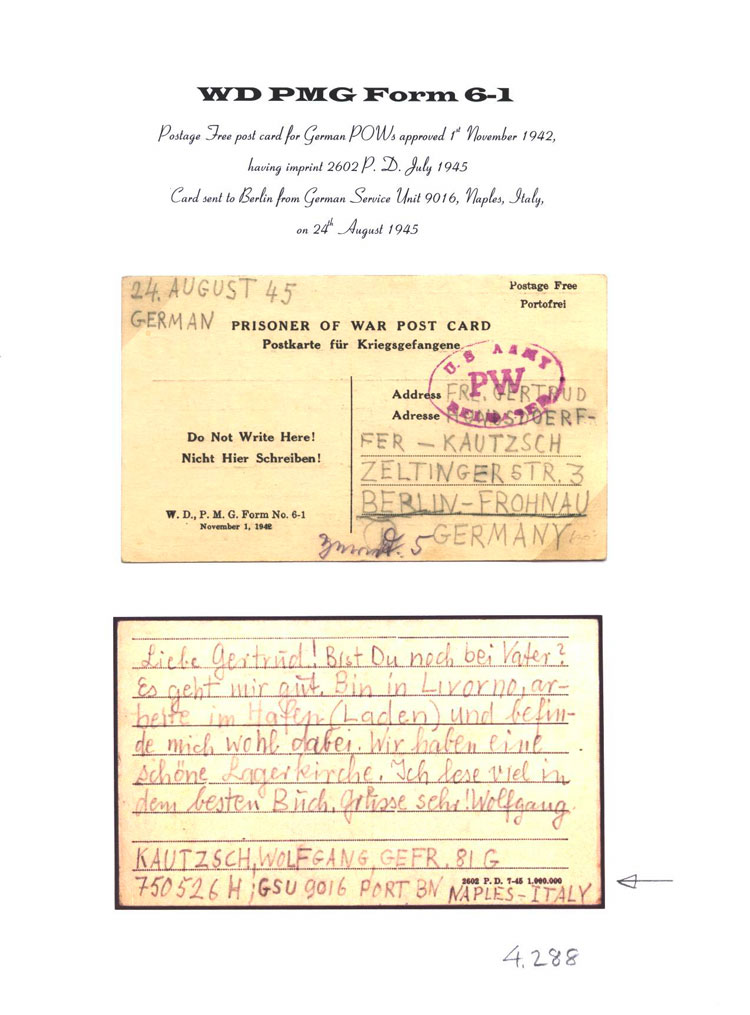 WD PMG Form 6-1
Postage Free post card for German POWs approved 1st November 1942,
having imprint 2602 P. D. July 1945
Card sent to Berlin from German Service Unit 9016, Naples, Italy,
on 24th August 1945
24. AUGUST 45
GERMAN
Postage Free
Portofrei
PRISONER OF WAR POST CARD
Postkarte für Kriegsgefangene
U.S ARMY
PW
Do Not Write Here!
Nicht Hier Schreiben!
W. D., P. M. G. Form No. 6-1
November 1, 1942
Address FR. GERTRUD
Adresse
FER – KAUTZSCH
ZELTINGER STR. 3
BERLIN-FROHNAU
GERMANY
5
Liebe Gertrud! Bist Du noch bei Vater?
Es geht mir gut. Bin in Livorno, ar-
beite im Hafen (Laden) und befin-
de mich wohl dabei. Wir haben eine
schöne Lagerkirche. Ich lese viel in
dem besten Buch. Grüsse sehr! Wolfgang.
KAUTZSCH, WOLFGANG, GEFR. 81 G
2602 P. D. 7-45 1,000,000
750526 H ; GSU 9016 PORT BN NAPLES-ITALY
4.288